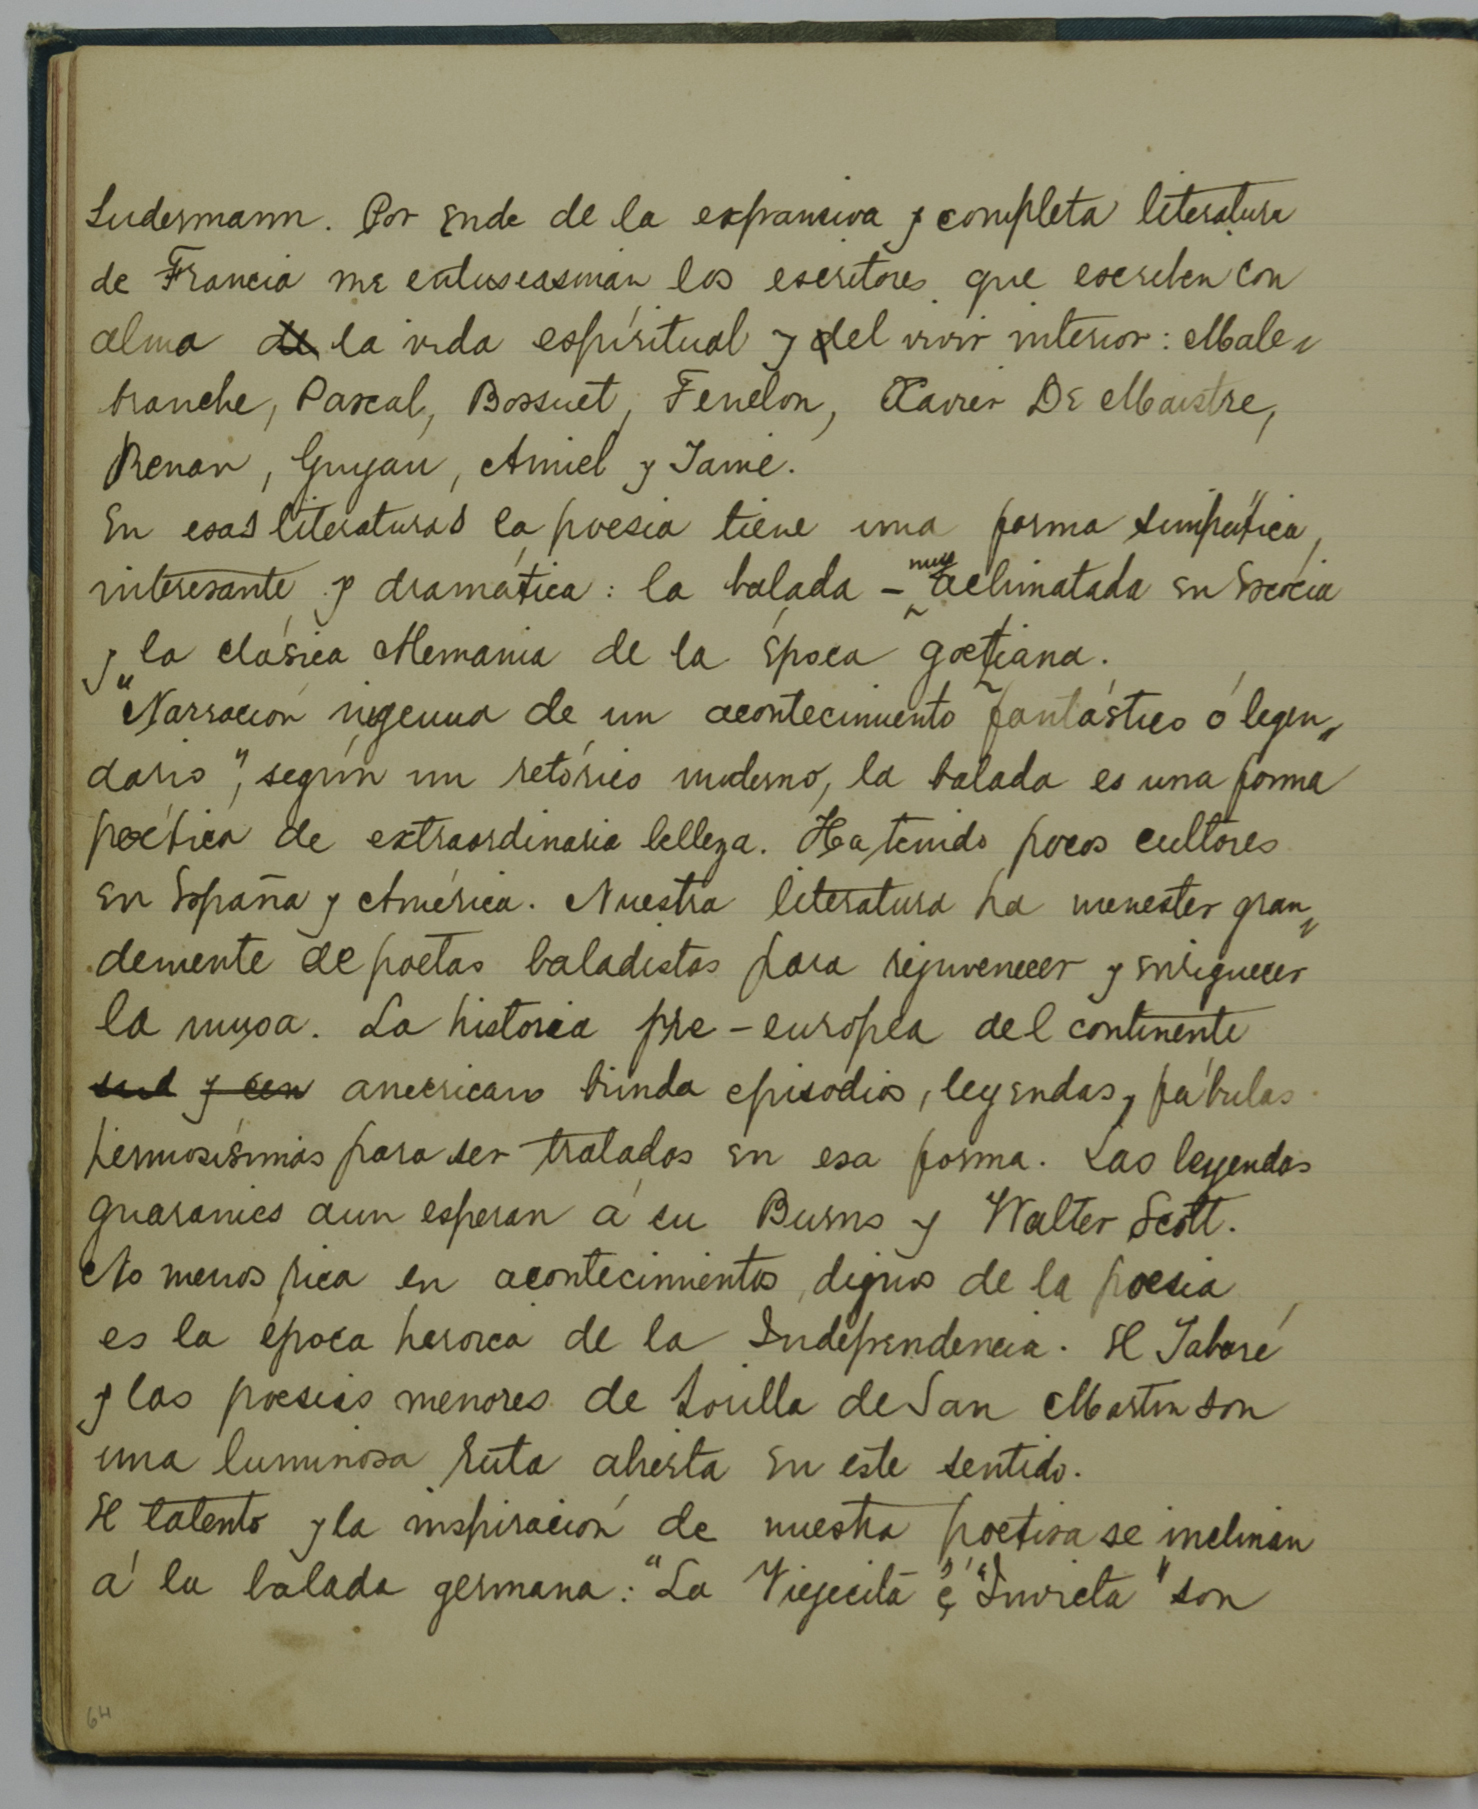 Sudermann. Por ende de la expansiva y completa literatura
de Francia me entuseasman los escritores que escriben con
alma de la vida espíritual y del vivir interior: Male=
branche, Pascal, Bossuet, Fenelon, Xavier De Maistre,
Renan, Guyau, Amiel y Taine.
En esas literaturas la poesia tiene una forma simpática,
interesante y dramática: la balada - muy aclimatada en Escocia
y la clásica Alemania de la época goetiana.
"Narración ingenua de un acontecimiento fantástico ó legen=
dario", según un retórico moderno, la balada es una forma
poética de extraordinaria belleza. Ha tenido pocos cultores
en España y América. Nuestra literatura ha menester gran=
demente de poetas baladistas para rejuvenecer y enriquecer
la musa. La historia pre-europea del continente
sud y cen americano brinda episodios, leyendas y fábulas
hermosísimas para ser tratados en esa forma. Las leyendas
guaranies aun esperan á su Burns y Walter Scott.
No menos rica en acontecimientos dignos de la poesia
es la época heroica de la Independencia. El Tabaré
y las poesias menores de Zorilla de San Martin son
una luminosa ruta abierta en este sentido.
El talento y la inspiración de nuestra poetisa se inclinan
á la balada germana: "La Viejecita" é "Invicta" son
64